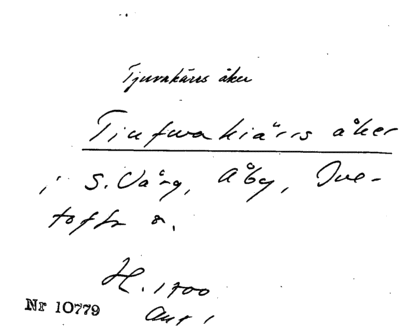 Tjuvakärrs åker
Tiufwakiärrs åker
i S. Vång, Åby, Tve-
tofta s.
H. 1700
Akt 1
Nr 10779